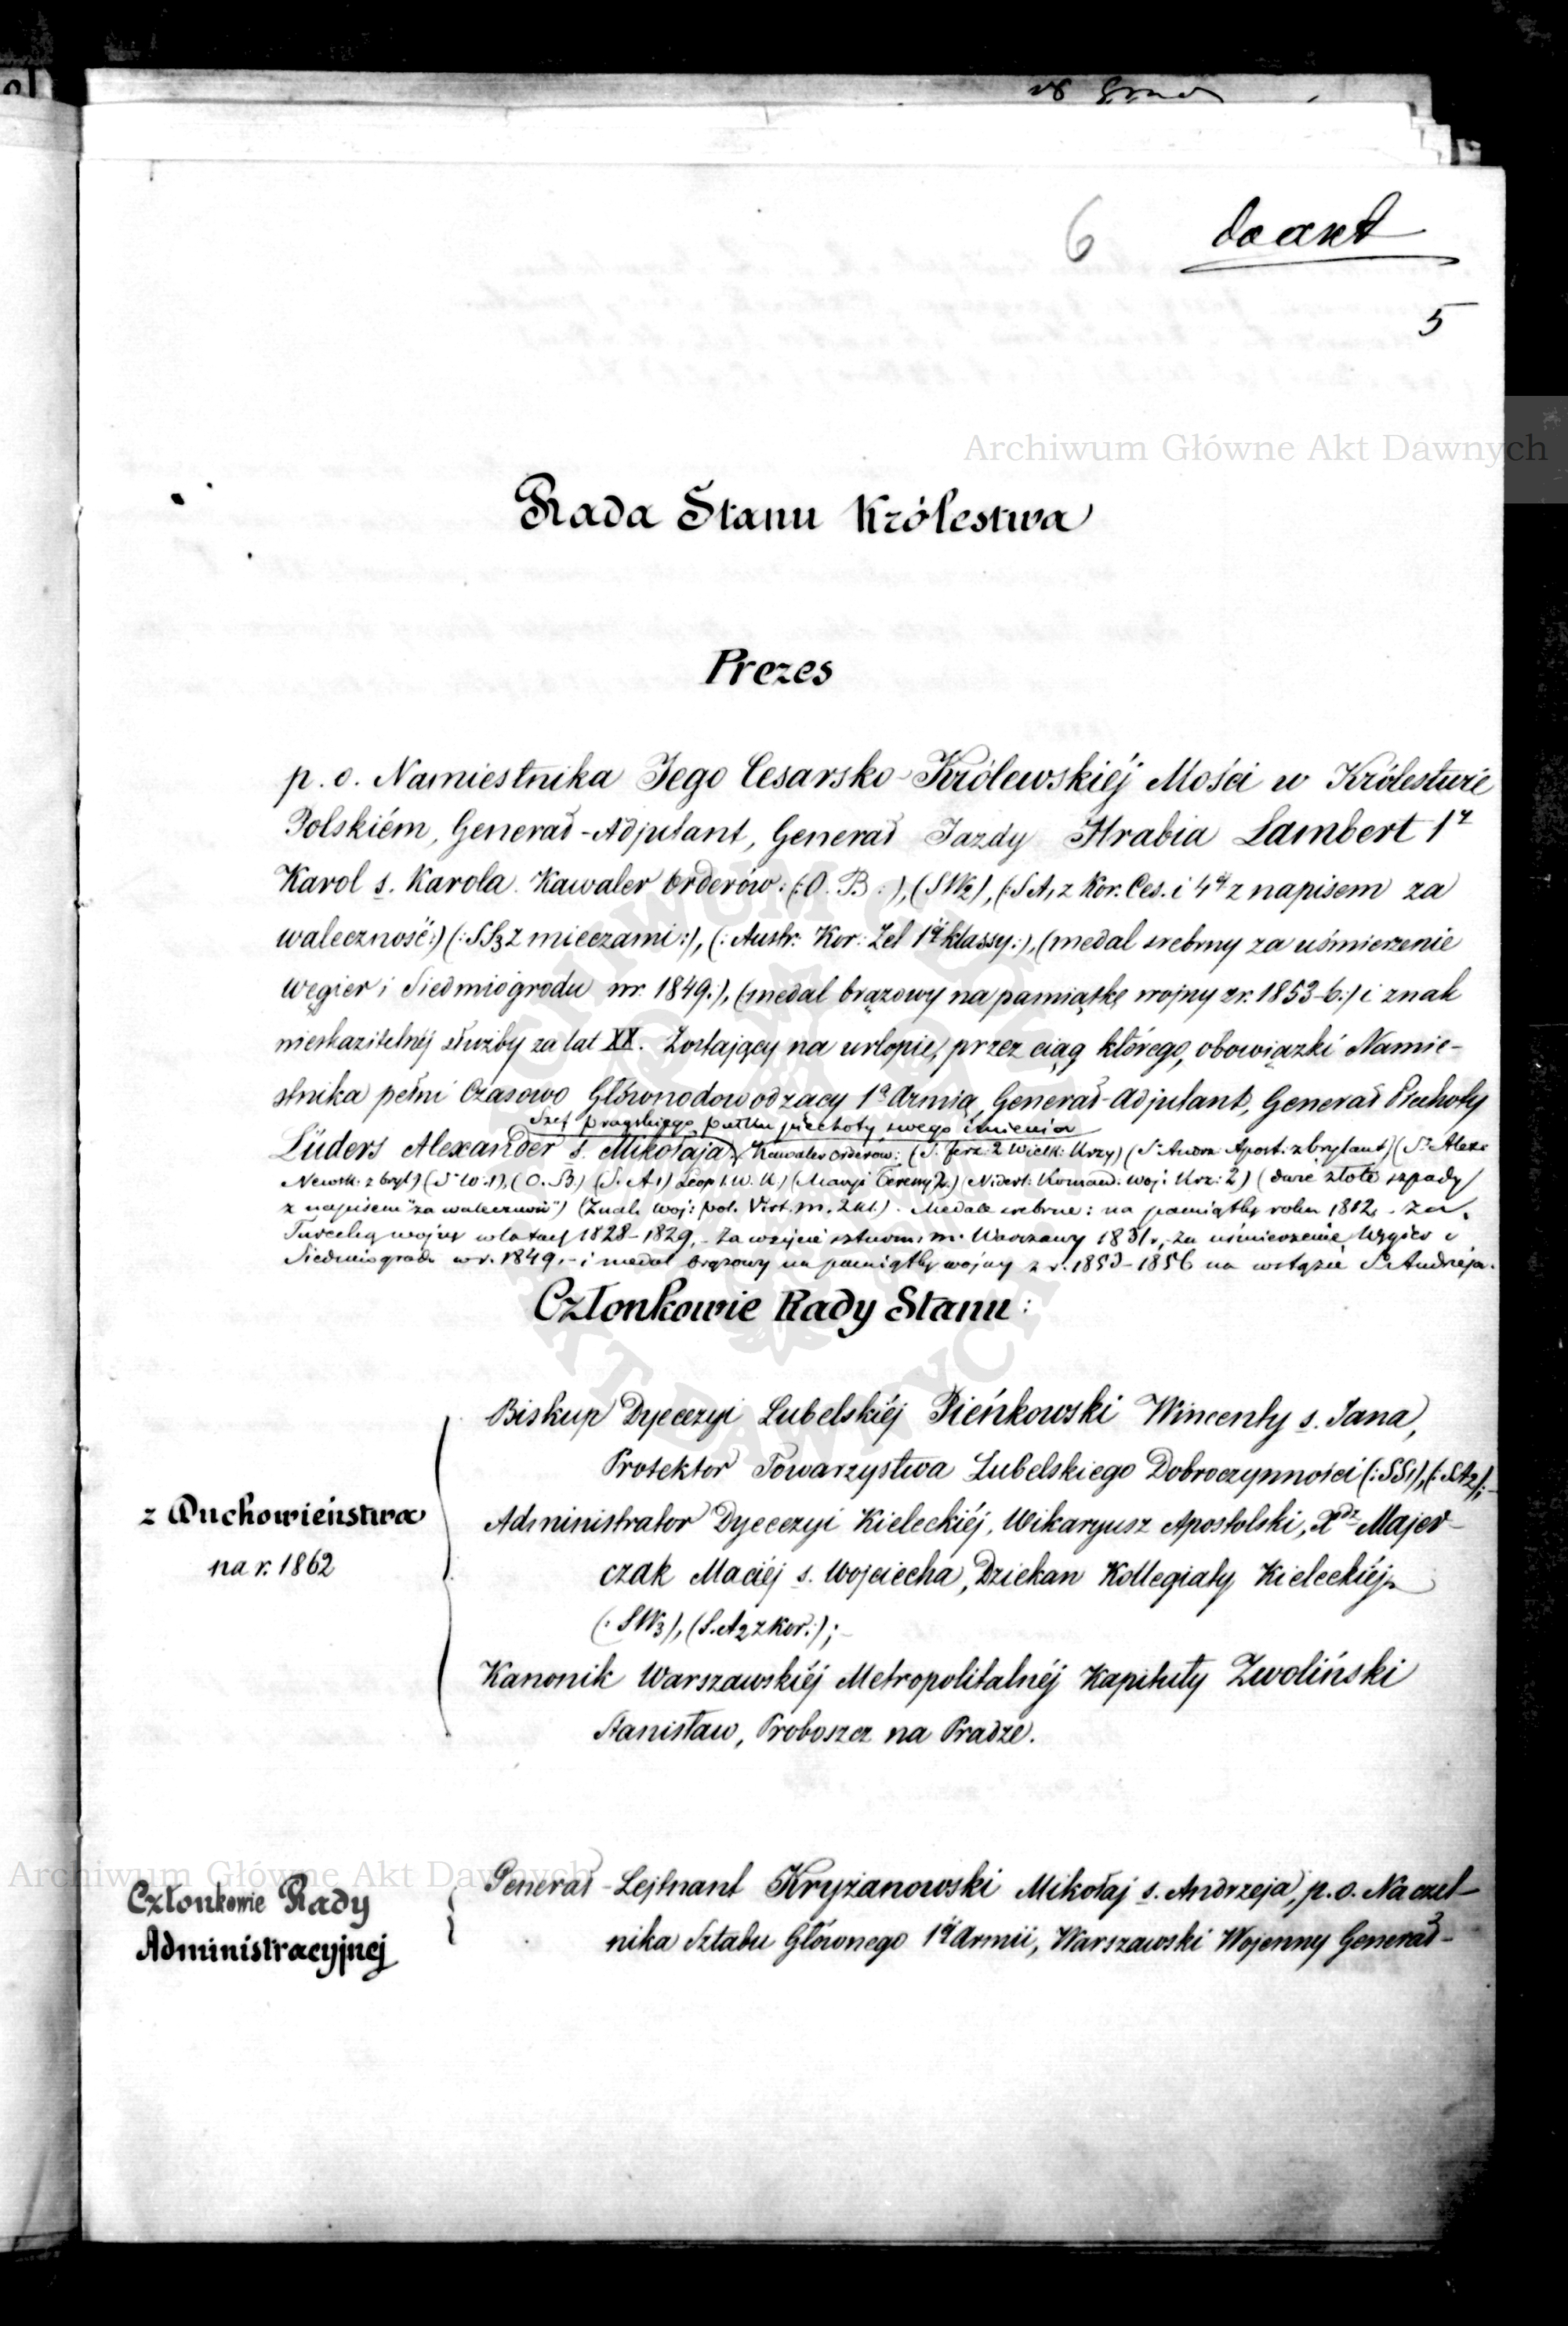 6 do akt
5
Archiwum Główne Akt Dawnych
Rada Stanu Królestwa
Prezes
p. o. Namiestnika Jego Cesarsko-Królewskiéj Mości w Królestwie
Polskiém, Generał-Adjutant, Generał Jazdy Hrabia Lambert 1y
Karol s. Karola. Kawaler Orderów: (:O. B:), (SW2), (:SA1 z Kor. Ces. i 4ej z napisem za
waleczność:) (:SS3 z mieczami:), (: Austr: Kor: Żel 1éj klassy:), (medal srebrny za uśmierzenie
Węgier i Siedmiogrodu w r. 1849:), (medal brązowy na pamiątkę wojny z r. 1853-6:) i znak
nieskazitelnéj służby za lat XX. Zostający na urlopie, przez ciąg którego, obowiązki Namie-
stnika pełni Czasowo Głównodowodzacy 1ą Armią, Generał-Adjutant, Generał Piechoty
Szef pragskiego pułku piechoty swego imienia
Lüders Alexander s. Mikołaja. Kawaler Orderów: (S. Jerz: 2 Wielk: Krzy) (S. Andrz: Apost: z brylant) (S. Alex:
Newsk: z bryl) (S. W: 1), (O. B.) (S. A1) Leop 1. W. K) (Maryi Teressy) (Niderl: Komand: Woj: Krz: 2) (dwie złote szpady
z napisem "za waleczność") (Znak woj: pol. Virt. m. 2 kl.). Medale srebrne: na pamiątkę roku 1812, - Za
Turecką wojnę w latach 1828-1829, - Za wzięcie szturm: m. Warszawy 1831 r, - Za uśmierzenie Węgier i
Siedmiogrodu w r. 1849, - i medal brązowy na pamiątkę wojny z r. 1853-1856 na wstążce S. Andrzeja.
Członkowie Rady Stanu:
z Duchowieństwa
na r. 1862
Biskup Dyecezyi Lubelskiéj Pieńkowski Wincenty s. Jana,
Protektor Towarzystwa Lubelskiego Dobroczynności (:SS1), (:SA2);-
Administrator Dyecezyi Kieleckiéj, Wikaryusz Apostolski, Xdz Majer-
czak Maciéj s. Wojciecha, Dziekan Kollegiaty Kieleckiéj,
(: SW3), (S. A2 z Kor:);-
Kanonik Warszawskiéj Metropolitalnéj Kapituły Zwoliński
Stanisław, Proboszcz na Pradze.
Archiwum Główne Akt Dawnych
Członkowie Rady
Administracyjnej
Generał-Lejtnant Kryżanowski Mikołaj s. Andrzeja, p. o. Naczel-
nika Sztabu Głównego 1éj Armii, Warszawski Wojenny Generał-